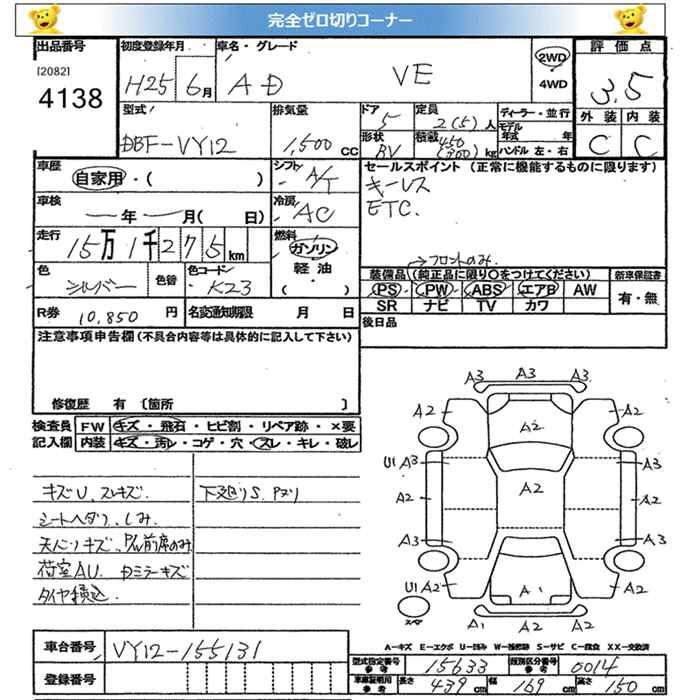 完全ゼロ切りコーナー
出品番号
[2082]
4138
初度登録年月
H25 6月
車名・グレード
AD VE
2WD
4WD
評価点
3.5
外装 内装
C C
型式
DBF-VY12
排気量
1,500 CC
ドア
5
定員
2(5)人
形状
BV
積載
450
(300)kg
ディーラー・並行
モデル年式 年
ハンドル 左・右
車歴
自家用・( )
シフト
A/T
セールスポイント (正常に機能するものに限ります)
キーレス
ETC.
車検
— 年 — 月( 日)
冷房
AC
走行
15万1千275km
燃料
ガソリン
軽油
・( )
色
シルバー
色替
色コード
K23
→フロントのみ.
装備品 (純正品に限り○をつけてください)
PS PW ABS エアB AW
SR ナビ TV カワ
新車保証書
有・無
R券 10,850 円
名変通知期限 月 日
後日品
注意事項申告欄 (不具合内容等は具体的に記入して下さい)
修復歴 有 〔箇所 〕
検査員記入欄
FW キズ・飛石・ヒビ割・リペア跡・×要
内装 キズ・汚レ・コゲ・穴・スレ・キレ・破レ
キズU、スレキズ. 下廻りS.
シートヘタリ、しみ
天バリキズ、P/W前席のみ
荷室AU. キズ
タイヤ積込
A3 A3 A3
A2 A2 A2
U1 A3 A3
A2 A2 A2
A3 A3
U1 A2 A1 A2
A1 A2 A2
スペア
A-キズ E-エクボ U-凹み W-補修跡 S-サビ C-腐食 XX-交換済
車台番号 VY12-155131
登録番号
型式指定番号 参考 15633
類別区分番号 参考 0014
車庫証明用 参考 長さ 439cm 幅 169cm 高さ 150cm